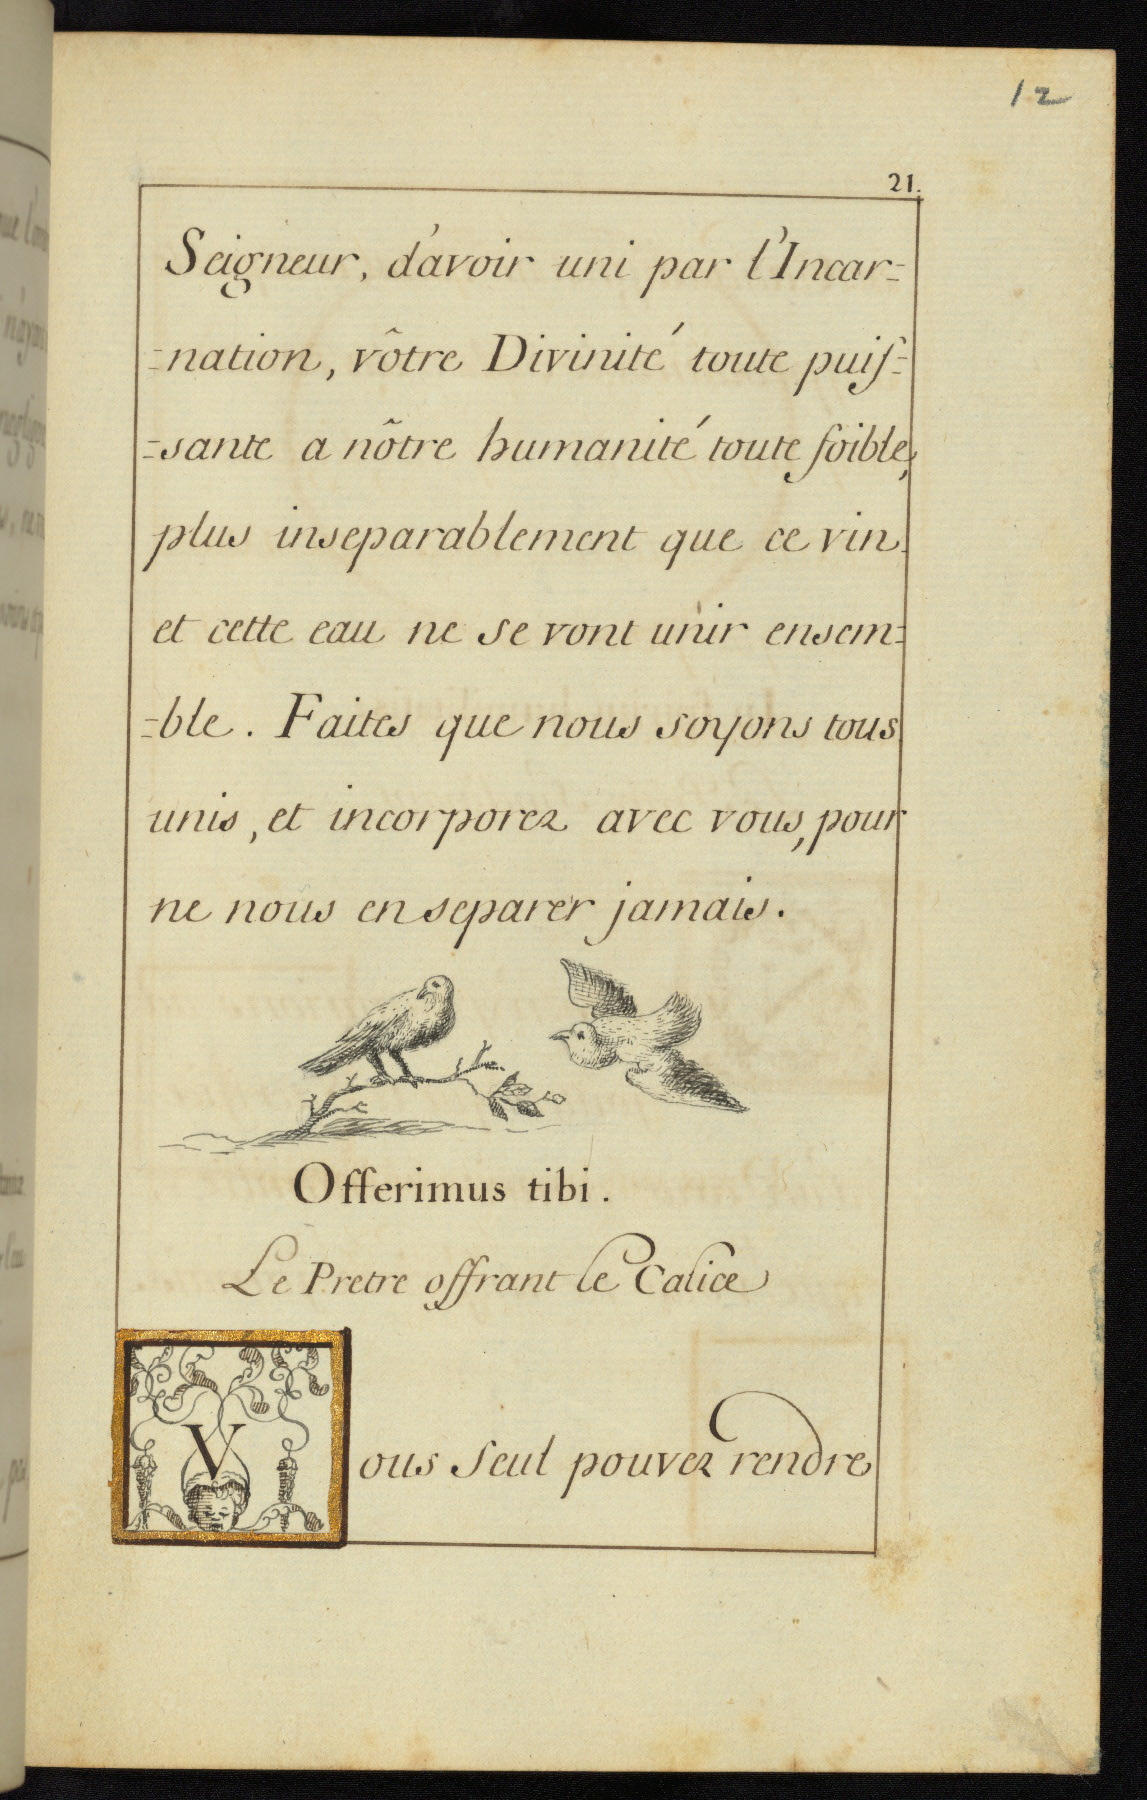 12
21.
Seigneur, d'avoir uni par l'Incar=
=nation, vôtre Divinité toute puis=
=sante a nôtre humanité toute foible,
plus inseparablement que ce vin
et cette eau ne se vont unir ensem=
=ble. Faites que nous soyons tous
unis, et incorporez avec vous, pour
ne nous en separer jamais.
Offerimus tibi.
Le Pretre offrant le Calice
Vous seul pouvez rendre